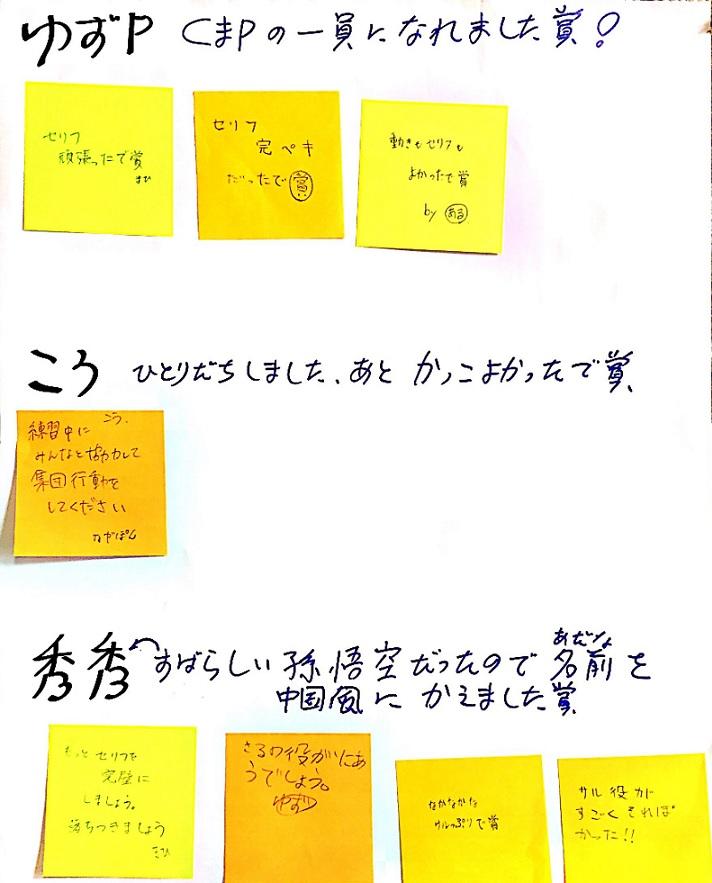 ゆずP くまPの一員になれました賞!
セリフ
頑張ったで賞
まひ
セリフ
完ペキ
だったで賞
動きもセリフも
よかったで賞
by ある
こう ひとりだちしました、あと かっこよかったで賞
こう.
練習中に
みんなと協力して
集団行動を
してください
ながぽん
秀秀 すばらしい孫悟空だったので名前を
あだな
中国風に かえました賞
もっとセリフを
完璧に
しましょう。
落ちつきましょう
さるの役がにあ
うでしょう。
ゆず
なかなかな
サルっぷりで賞
サル役が
すごく
かった!!